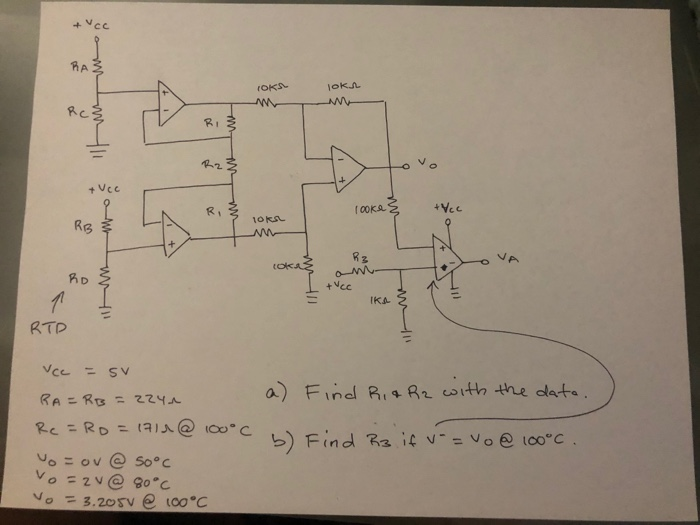 +Vcc
RA
Rc
10KΩ
10KΩ
R1
R2
R1
+Vcc
RB
RD
RTD
10KΩ
10KΩ
Vo
100KΩ
+Vcc
R3
+Vcc
1KΩ
VA
Vcc = 5V
RA = RB = 224Ω
Rc = RD = 171Ω @ 100°C
Vo = 0V @ 50°C
Vo = 2V @ 80°C
Vo = 3.205V @ 100°C
a) Find R1 & R2 with the data.
b) Find R3 if V- = Vo @ 100°C.